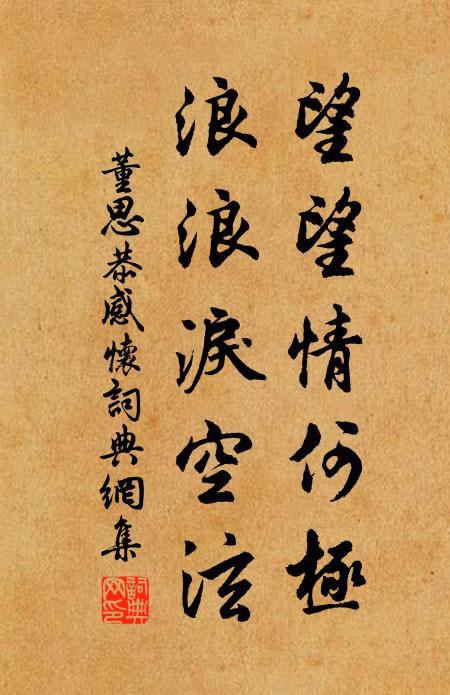 望望情何極
浪浪淚空泫
董思恭感懷詞典網集
詞典网印